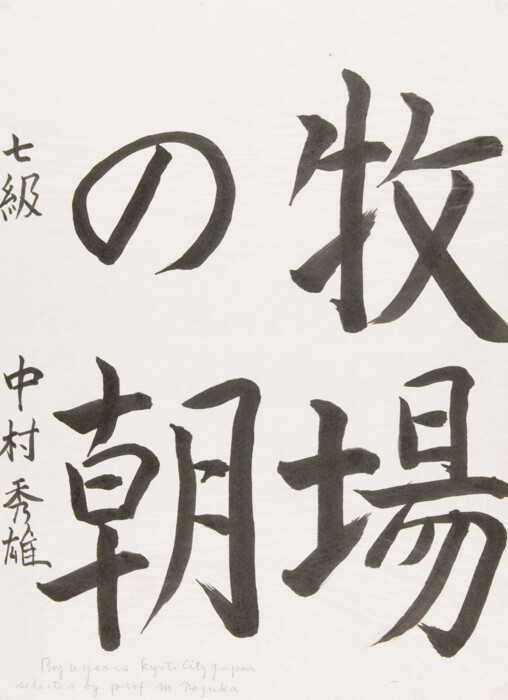 牧場
の朝
七級 中村秀雄
Boy 11 years Kyoto City Japan
selected by prof M